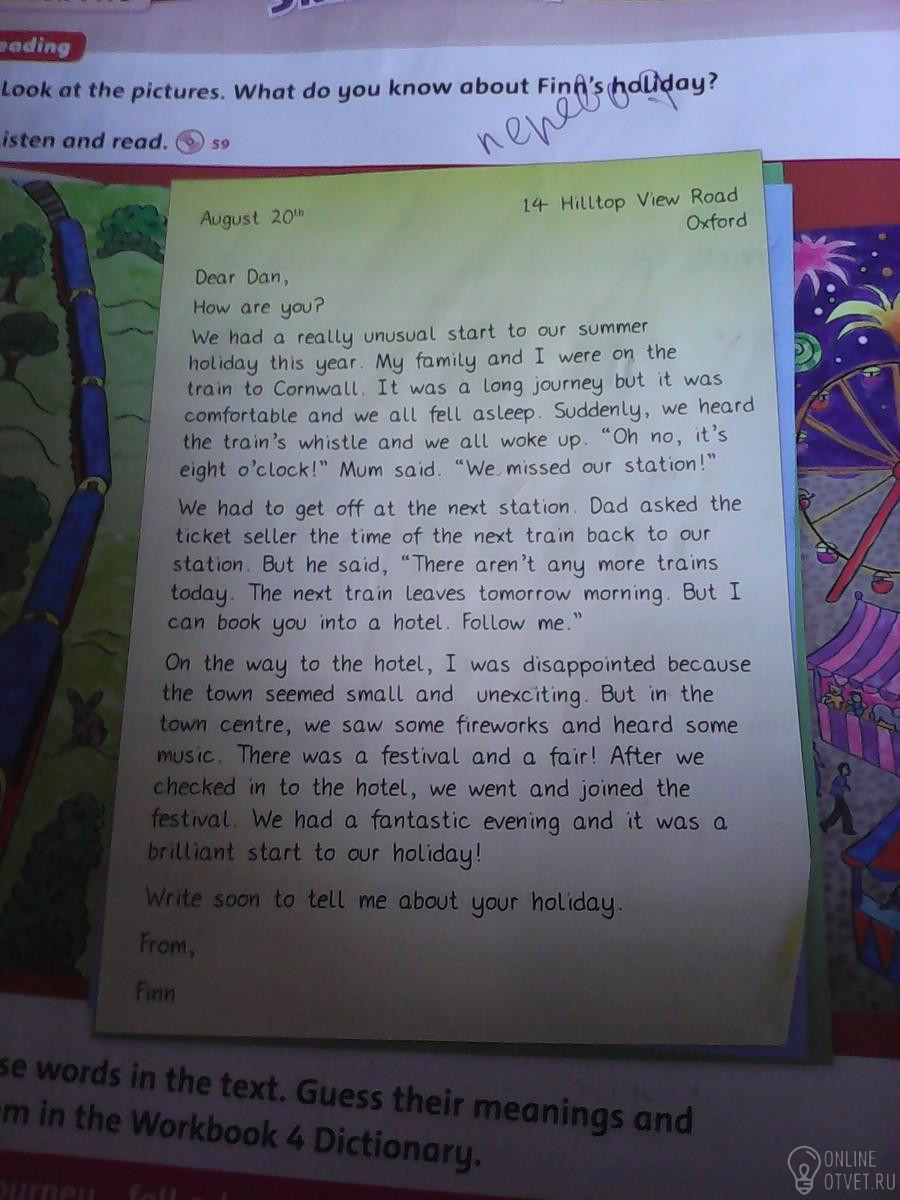 eading
Look at the pictures. What do you know about Finn's holiday?
isten and read. 59
перевод
August 20th
14 Hilltop View Road
Oxford
Dear Dan,
How are you?
We had a really unusual start to our summer
holiday this year. My family and I were on the
train to Cornwall. It was a long journey but it was
comfortable and we all fell asleep. Suddenly, we heard
the train's whistle and we all woke up. "Oh no, it's
eight o'clock!" Mum said. "We missed our station!"
We had to get off at the next station. Dad asked the
ticket seller the time of the next train back to our
station. But he said, "There aren't any more trains
today. The next train leaves tomorrow morning. But I
can book you into a hotel. Follow me."
On the way to the hotel, I was disappointed because
the town seemed small and unexciting. But in the
town centre, we saw some fireworks and heard some
music. There was a festival and a fair! After we
checked in to the hotel, we went and joined the
festival. We had a fantastic evening and it was a
brilliant start to our holiday!
Write soon to tell me about your holiday.
From,
Finn
se words in the text. Guess their meanings and
em in the Workbook 4 Dictionary.
ourney fell
ONLINE
OTVET.RU